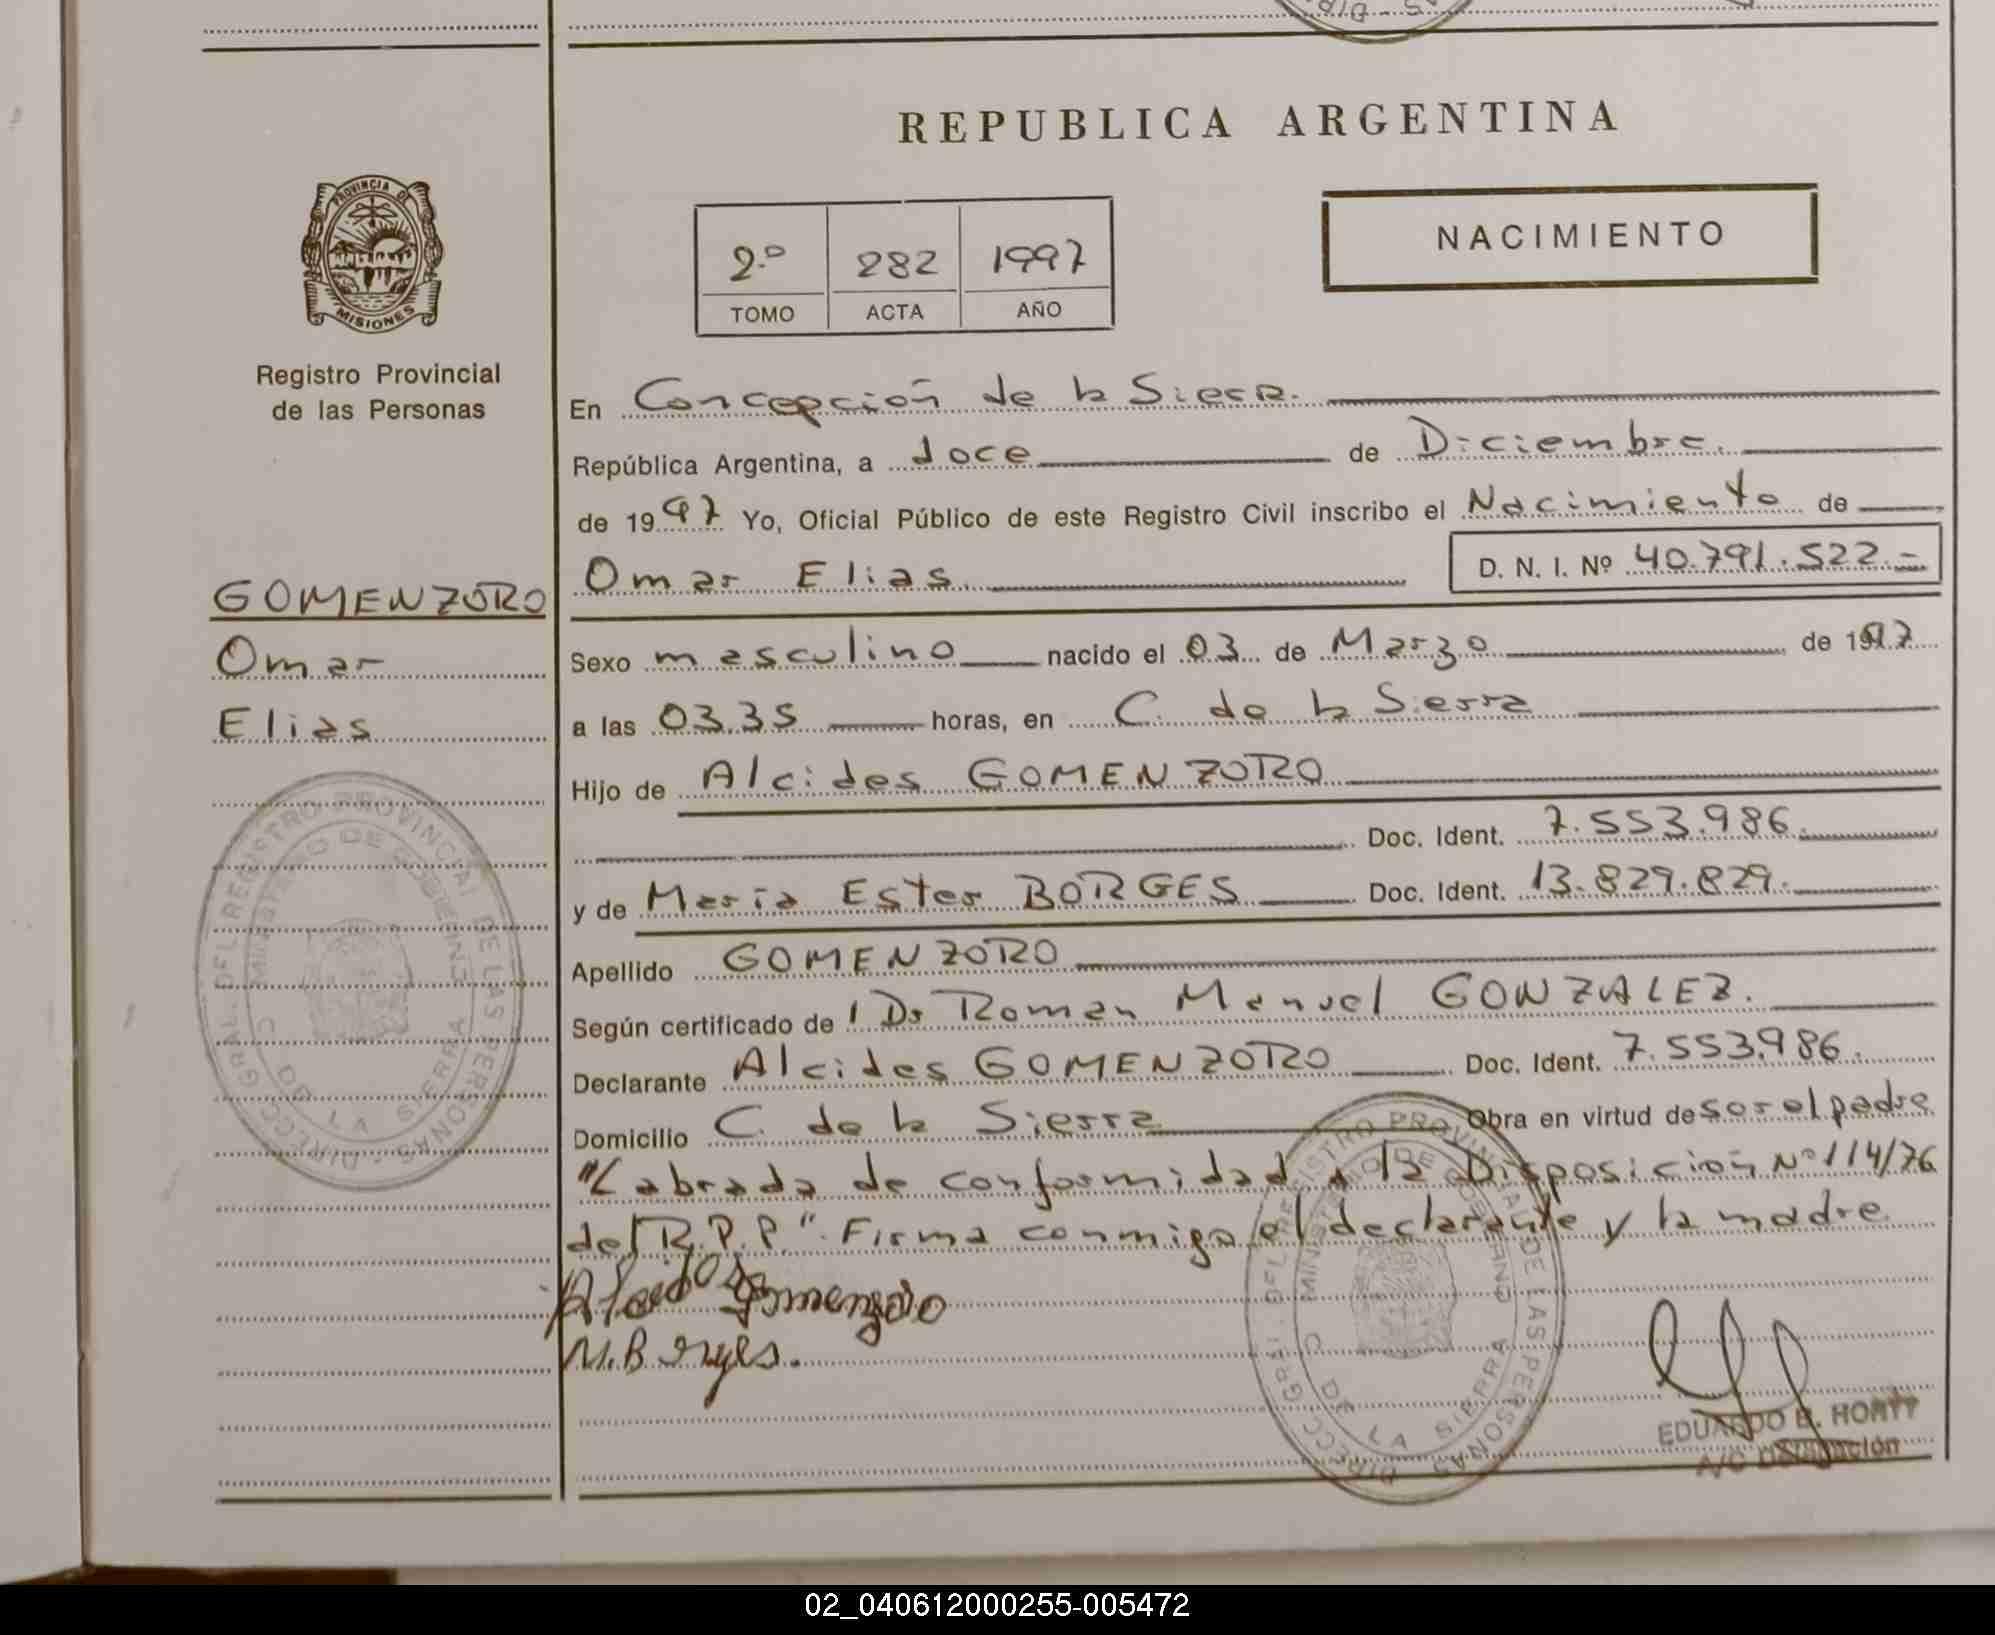 REPUBLICA ARGENTINA
PROVINCIA DE
MISIONES
Registro Provincial
de las Personas
2.º 282 1997
TOMO ACTA AÑO
NACIMIENTO
En Concepción de la Sierra.
República Argentina, a doce de Diciembre.
de 1997 Yo, Oficial Público de este Registro Civil inscribo el Nacimiento de
Omar Elias. D. N. I. Nº 40.791.522.-
GOMENZORO
Omar
Elias
Sexo masculino nacido el 03 de Marzo de 1997
a las 03.35 horas, en C. de la Sierra
Hijo de Alcides GOMENZORO
Doc. Ident. 7.553.986.
y de Maria Ester BORGES Doc. Ident. 13.829.829.
Apellido GOMENZORO
Según certificado de 1 Dr Roman Manuel GONZALEZ.
Declarante Alcides GOMENZORO Doc. Ident. 7.553.986.
Domicilio C. de la Sierra Obra en virtud de ser el padre
"Labrada de conformidad a la Disposición Nº 114/76
del R.P.P." Firma conmigo el declarante y la madre.
Gomenzoro
DIRECC. GRAL. DEL REGISTRO PROVINCIAL DE LAS PERSONAS
MINISTERIO DE GOBIERNO
C DE LA SIERRA
DIRECC. GRAL. DEL REGISTRO PROVINCIAL DE LAS PERSONAS
MINISTERIO DE GOBIERNO
C DE LA SIERRA
EDUARDO
A/C Delegación
02_040612000255-005472